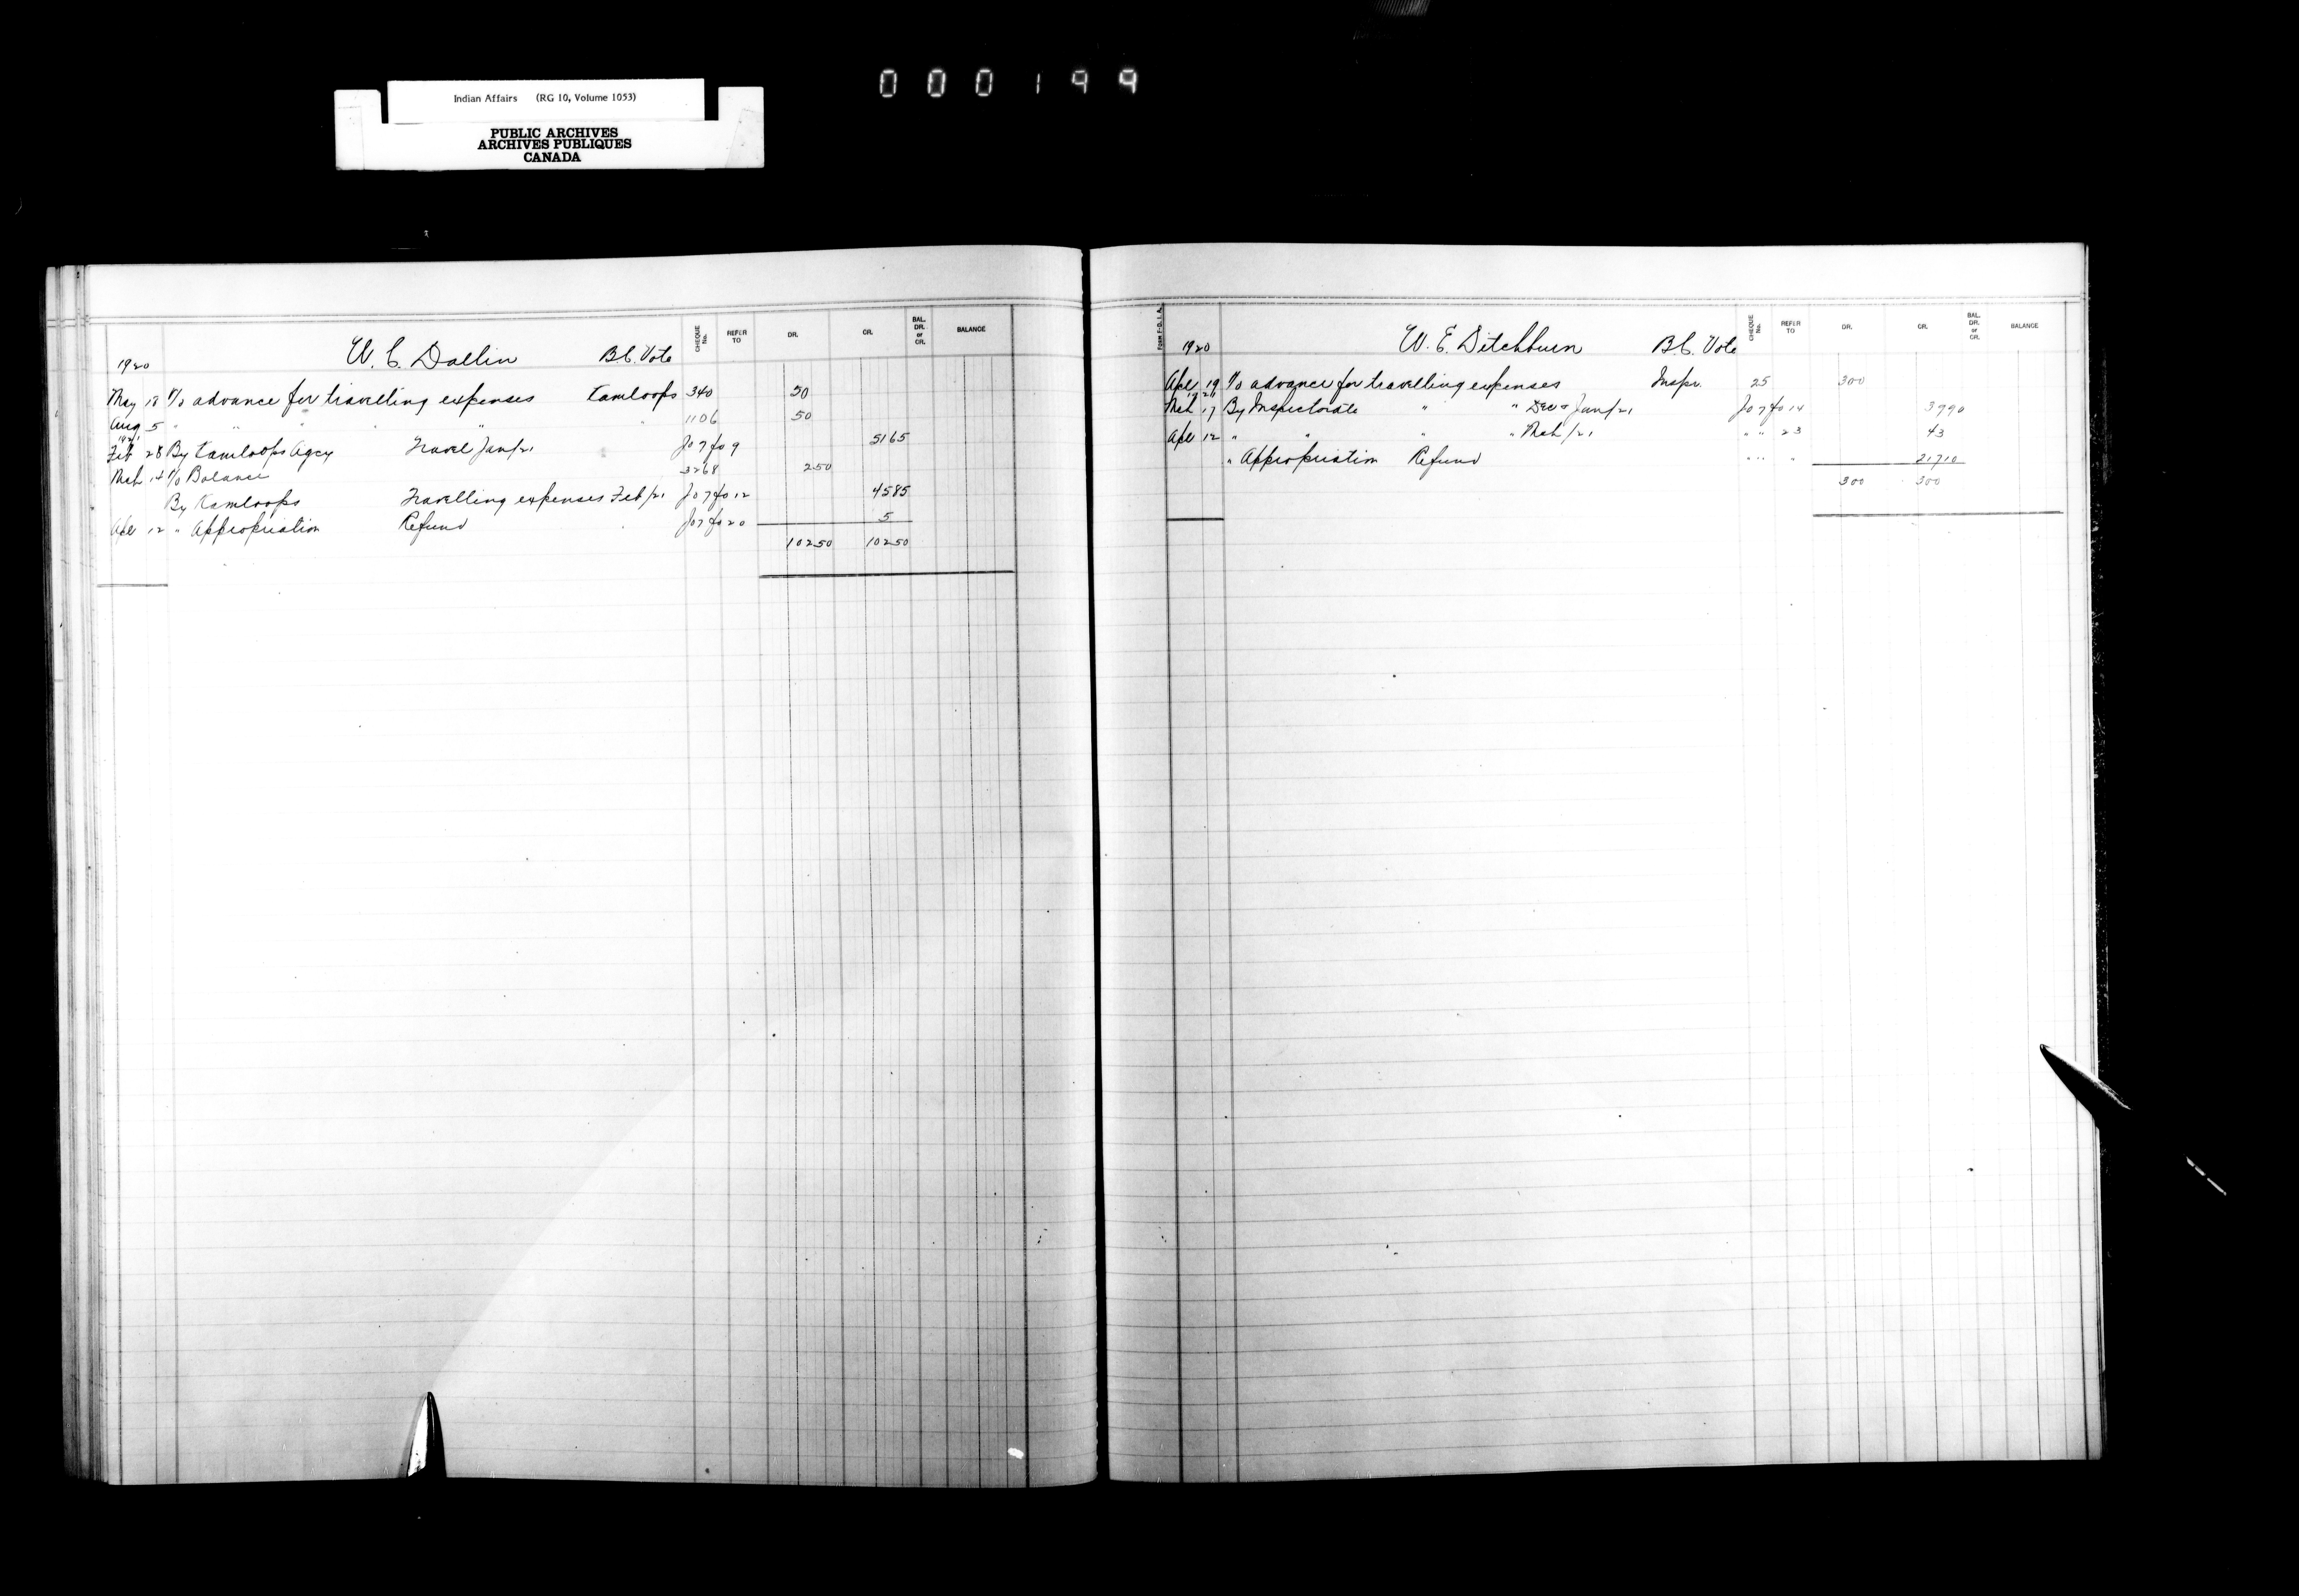 000199
Indian Affairs (RG 10, Volume 1053)
PUBLIC ARCHIVES
ARCHIVES PUBLIQUES
CANADA
1920 W. C. Dallin B.C. Vote CHEQUE No. REFER TO DR. CR. BAL. DR. or CR. BALANCE
May 18 To advance for travelling expenses Kamloops 340 50
Aug 5 " " " " " " 1106 50
1921
Feb 28 By Kamloops Agcy Travel Jan/21 Jo 7 fo 9 51 65
Mch 14 To Balance 3268 2 50
By Kamloops Travelling expenses Feb/21 Jo 7 fo 12 45 85
Apr 12 " Appropriation Refund Jo 7 fo 20 5
102 50 102 50
Form F-D. I. A.
1920 W. E. Ditchburn B.C. Vote CHEQUE No. REFER TO DR. CR. BAL. DR. or CR. BALANCE
Apr 19 To advance for travelling expenses Inspr. 25 300
1921
Mch 17 By Inspectorate " " Dec & Jan/21 Jo 7 fo 14 39 90
Apr 12 " " " " Mch/21 " " 23 43
" Appropriation Refund " " " 217 10
300 300